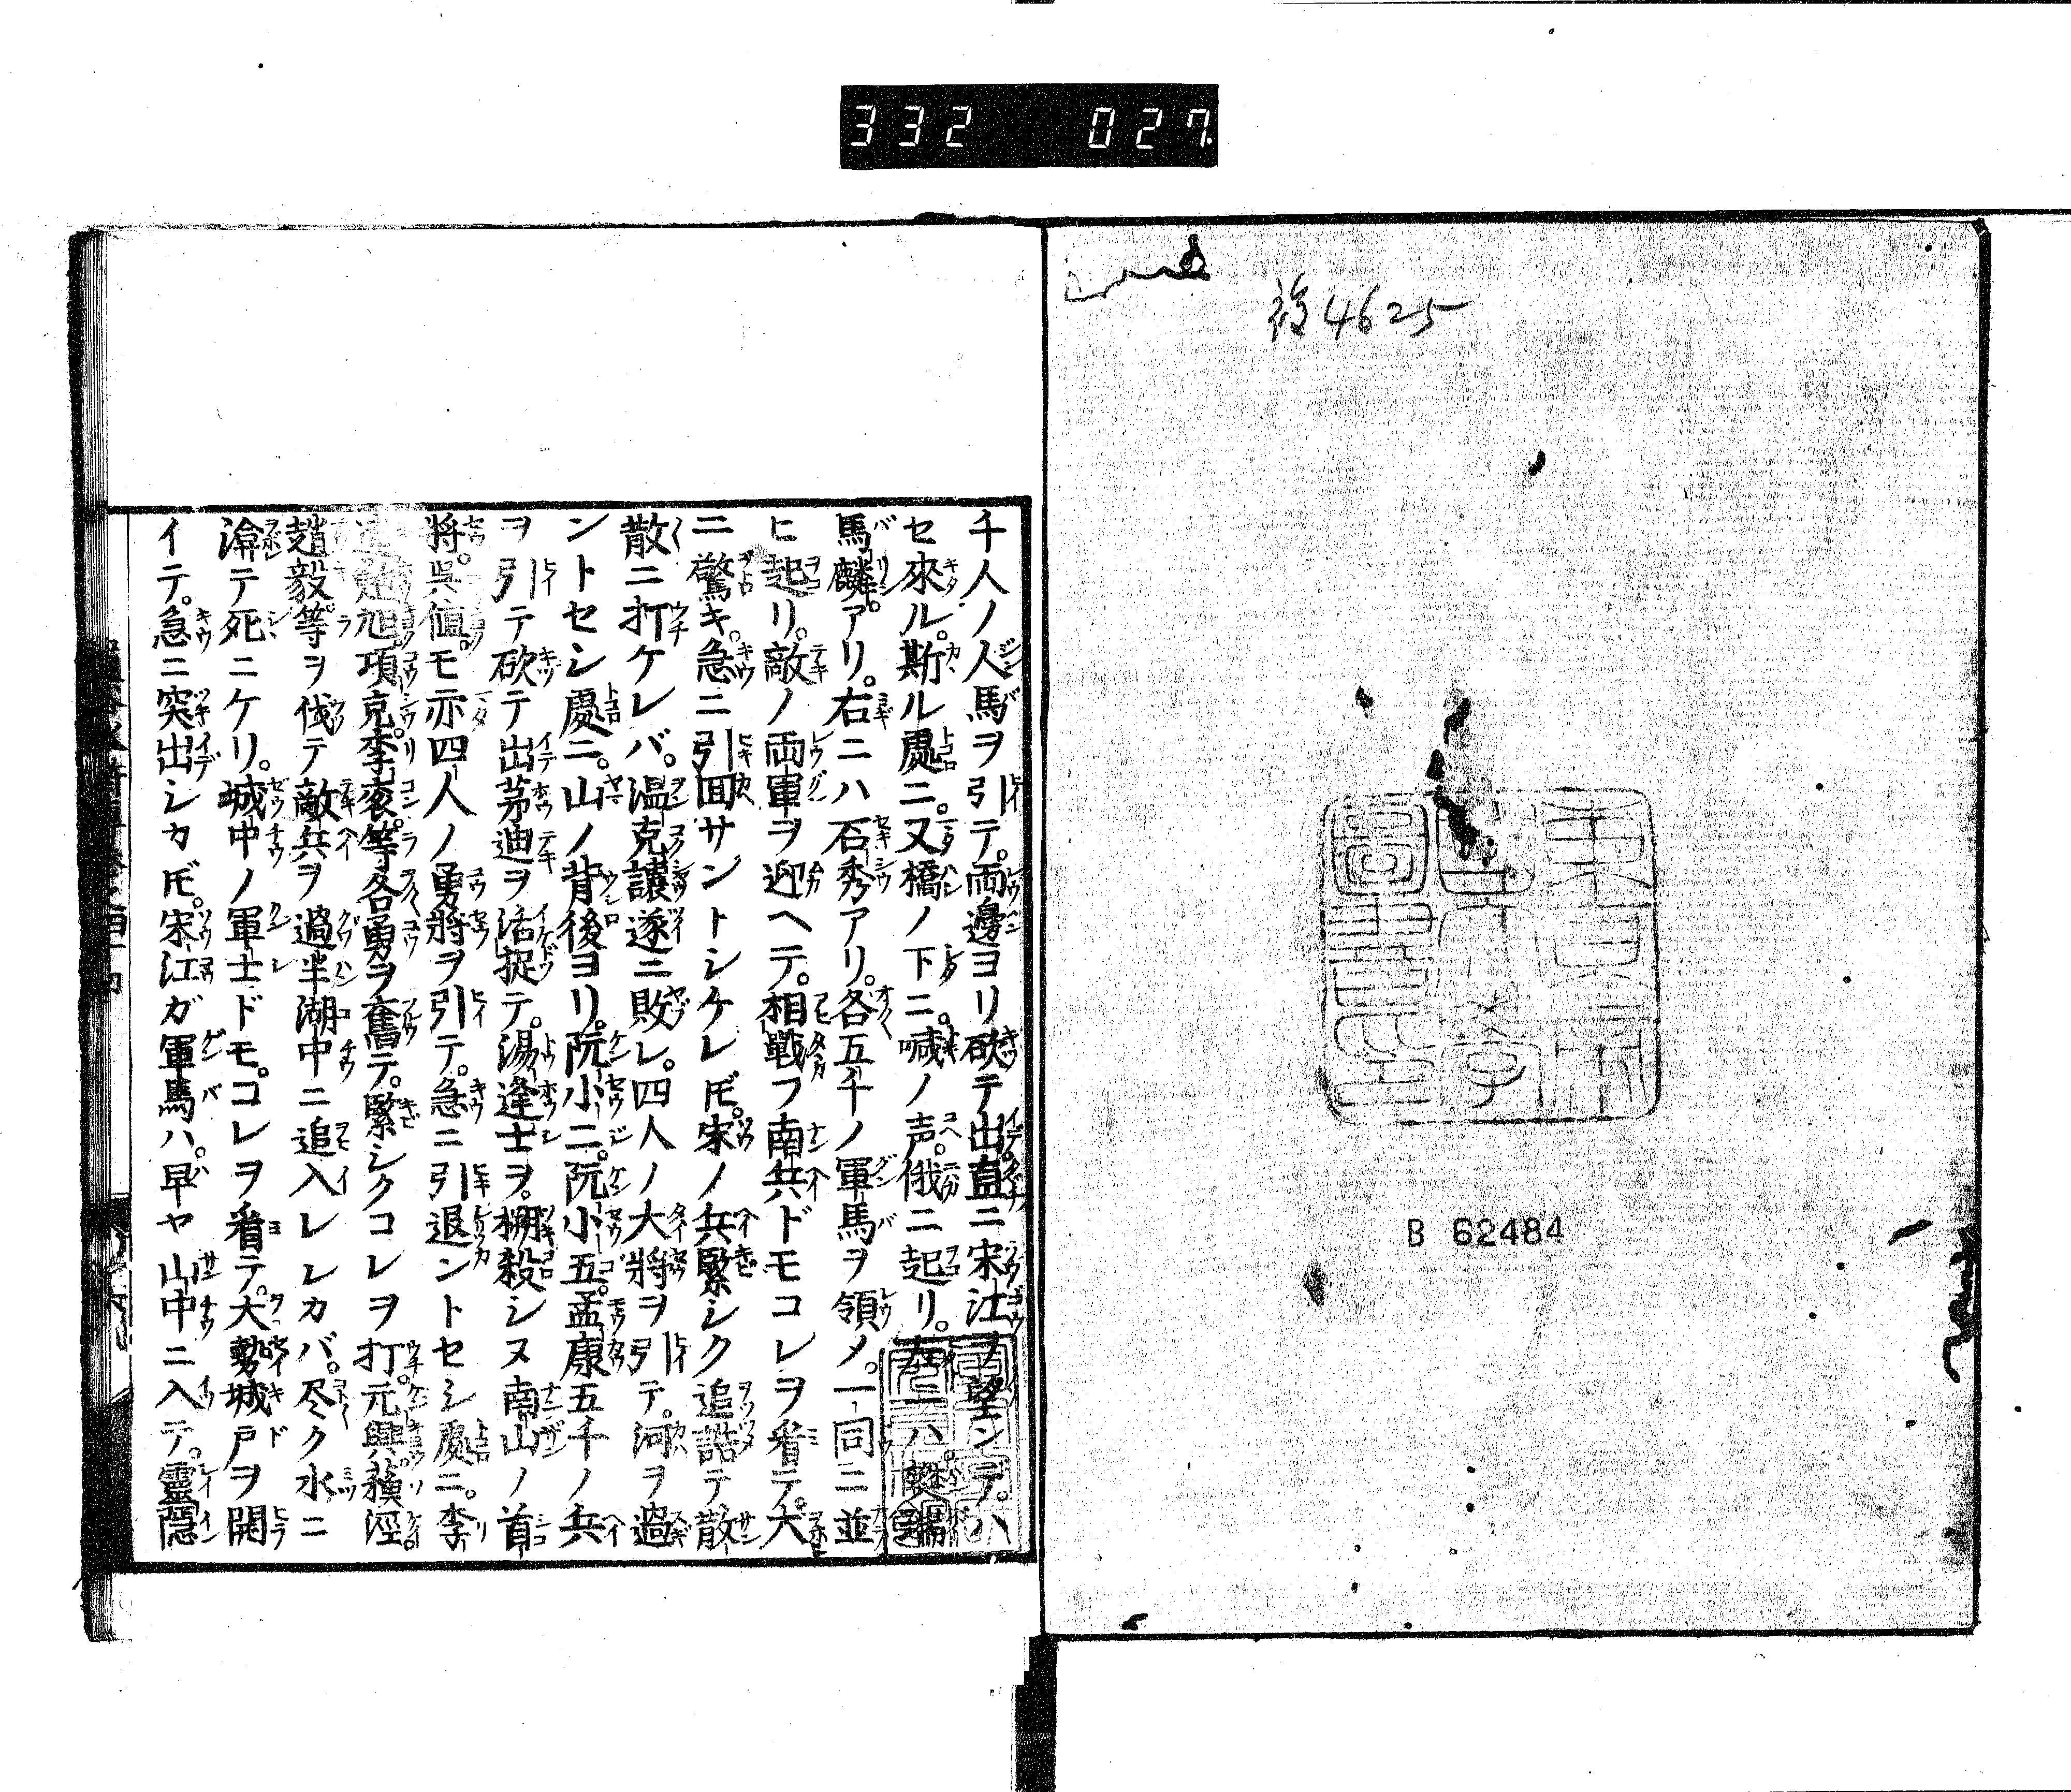 332 027
後4625
B 62484
千人ノ人馬ヲ引テ。両邊ヨリ砍テ出。直ニ宋江ヲ望ンデ。ハ
セ來ル。斯ル處ニ。又橋ノ下ニ。喊ノ声。俄ニ起リ。左ニハ。
馬麟アリ。右ニハ石秀アリ。各五千ノ軍馬ヲ領メ。一同ニ並
ヒ起リ。敵ノ両軍ヲ迎ヘテ。相戦フ南兵ドモコレヲ看テ。大
ニ驚キ。急ニ引回サントシケレ𪜈。宋ノ兵緊シク追詰テ散
散ニ打ケレバ。温克讓遂ニ敗レ。四人ノ大將ヲ引テ。河ヲ過
ントセシ處ニ。山ノ背後ヨリ。阮小二。阮小五。孟康五千ノ兵
ヲ引テ砍テ出茅迪ヲ活捉テ。湯逢士ヲ。搠殺シヌ南山ノ首
將。呉値。モ亦四人ノ勇將ヲ引テ。急ニ引退ントセシ處ニ。李
逵鮑旭。項充。李衮。等各勇ヲ奮テ。緊シクコレヲ打。元興。蘓涇。
趙毅等ヲ伐テ敵兵ヲ過半湖中ニ追入レレカバ。尽ク水ニ
渰テ死ニケリ。城中ノ軍士ドモ。コレヲ看テ。大勢城戸ヲ開
イテ。急ニ突出シカ𪜈。宋江ガ軍馬ハ。早ヤ山中ニ入テ。靈隠